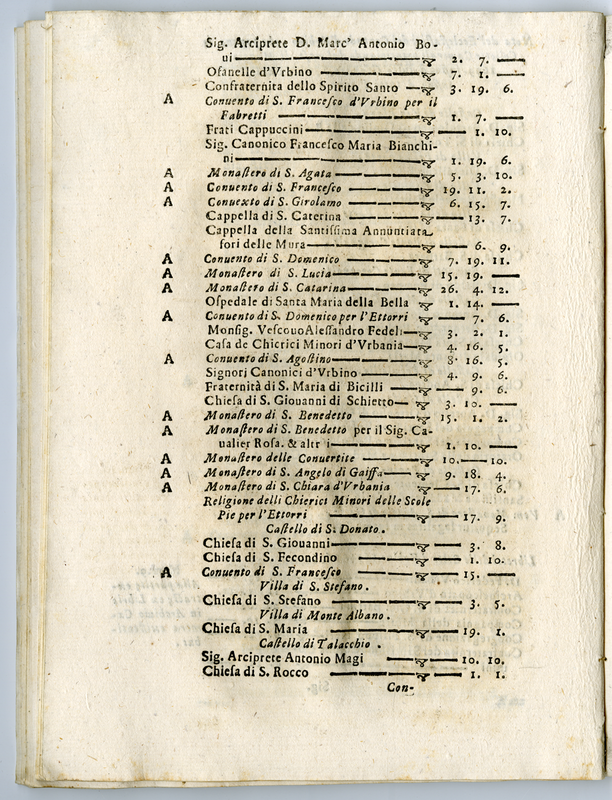 Sig. Arciprete D. Marc' Antonio Bo-
ui — 2. 7. —
Ofanelle d'Vrbino — 7. 1. —
Confraternita dello Spirito Santo — 3. 19. 6.
A Conuento di S. Francesco d'Vrbino per il
Fabretti — 1. 7. —
Frati Cappuccini — — 1. 10.
Sig. Canonico Francesco Maria Bianchi-
ni — 1. 19. 6.
A Monastero di S. Agata — 5. 3. 10.
A Conuento di S. Francesco — 19. 11. 2.
A Conuexto di S. Girolamo — 6. 15. 7.
Cappella di S. Caterina — — 13. 7.
Cappella della Santissima Annuntiata
fori delle Mura — — 6. 9.
A Conuento di S. Domenico — 7. 19. 11.
A Monastero di S. Lucia — 15. 19. —
A Monastero di S. Catarina — 26. 4. 12.
Ospedale di Santa Maria della Bella 1. 14. —
A Conuento di S. Domenico per l'Ettorri — 7. 6.
Monsig. Vescouo Alessandro Fedeli — 3. 2. 1.
Casa de Chierici Minori d'Vrbania — 4. 16. 5.
A Conuento di S. Agostino — 8. 16. 5.
Signori Canonici d'Vrbino — 4. 9. 6.
Fraternità di S. Maria di Bicilli — — 9. 6.
Chiesa di S. Giouanni di Schietto — 3. 10. —
A Monastero di S. Benedetto — 15. 1. 2.
A Monastero di S. Benedetto per il Sig. Ca-
ualier Rosa. & altri — 1. 10. —
A Monastero delle Conuertite — 10. — 10.
A Monastero di S. Angelo di Gaiffa — 9. 18. 4.
A Monastero di S. Chiara d'Vrbania — 17. 6.
Religione delli Chierici Minori delle Scole
Pie per l'Ettorri — — 17. 9.
Castello di S. Donato.
Chiesa di S. Giouanni — — 3. 8.
Chiesa di S. Fecondino — — 1. 10.
A Conuento di S. Francesco — — 15. —
Villa di S. Stefano.
Chiesa di S. Stefano — — 3. 5.
Villa di Monte Albano.
Chiesa di S. Maria — — 19. 1.
Castello di Talacchio.
Sig. Arciprete Antonio Magi — — 10. 10.
Chiesa di S. Rocco — — 1. 1.
Con-